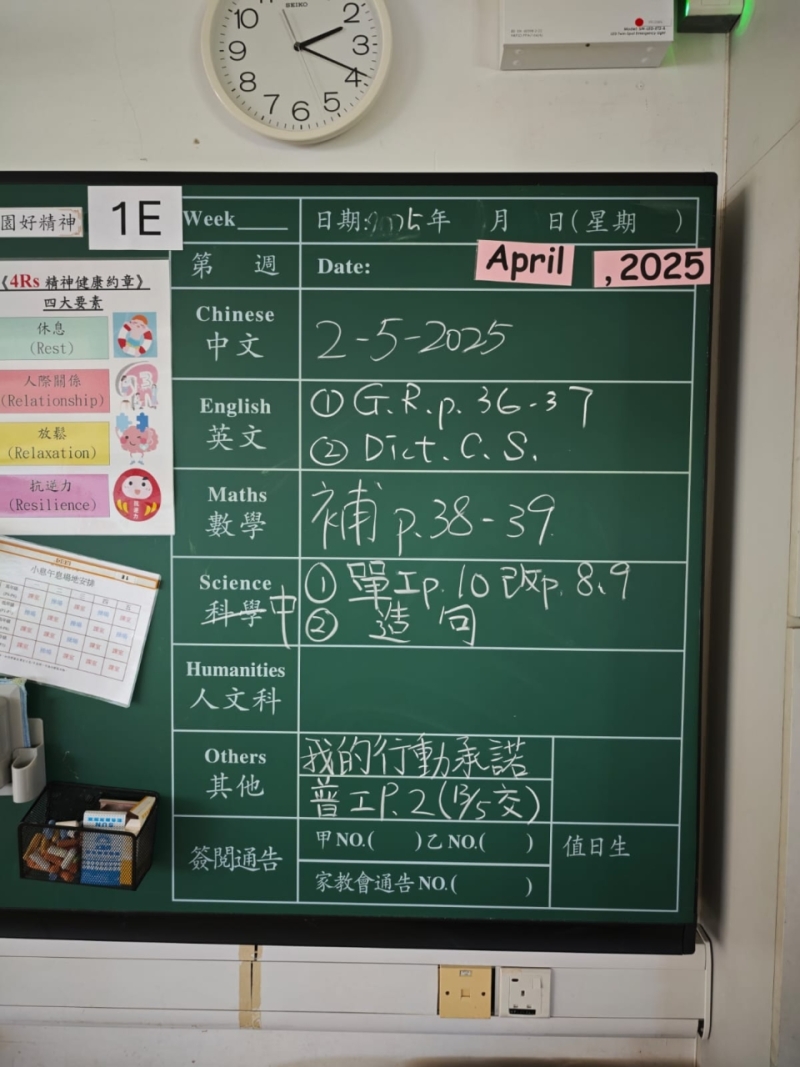 SEIKO
10 2 3 9 8 4 7 6 5
園好精神
1E
Week
日期:2025年 月 日(星期 )
第 週
Date:
April , 2025
《4Rs 精神健康約章》
四大要素
休息
(Rest)
人際關係
(Relationship)
放鬆
(Relaxation)
抗逆力
(Resilience)
Chinese
中文
2-5-2025
English
英文
① G.R.p. 36-37
② Dict. C.S.
Maths
數學
補 p.38-39
Science
科學 中
① 單工p.10 改p.8、9
② 造句
Humanities
人文科
Others
其他
我的行動承諾
普工P.2(13/5交)
簽閱通告
甲NO.( )乙NO.( )
家教會通告NO.( )
值日生
小息午息場地安排